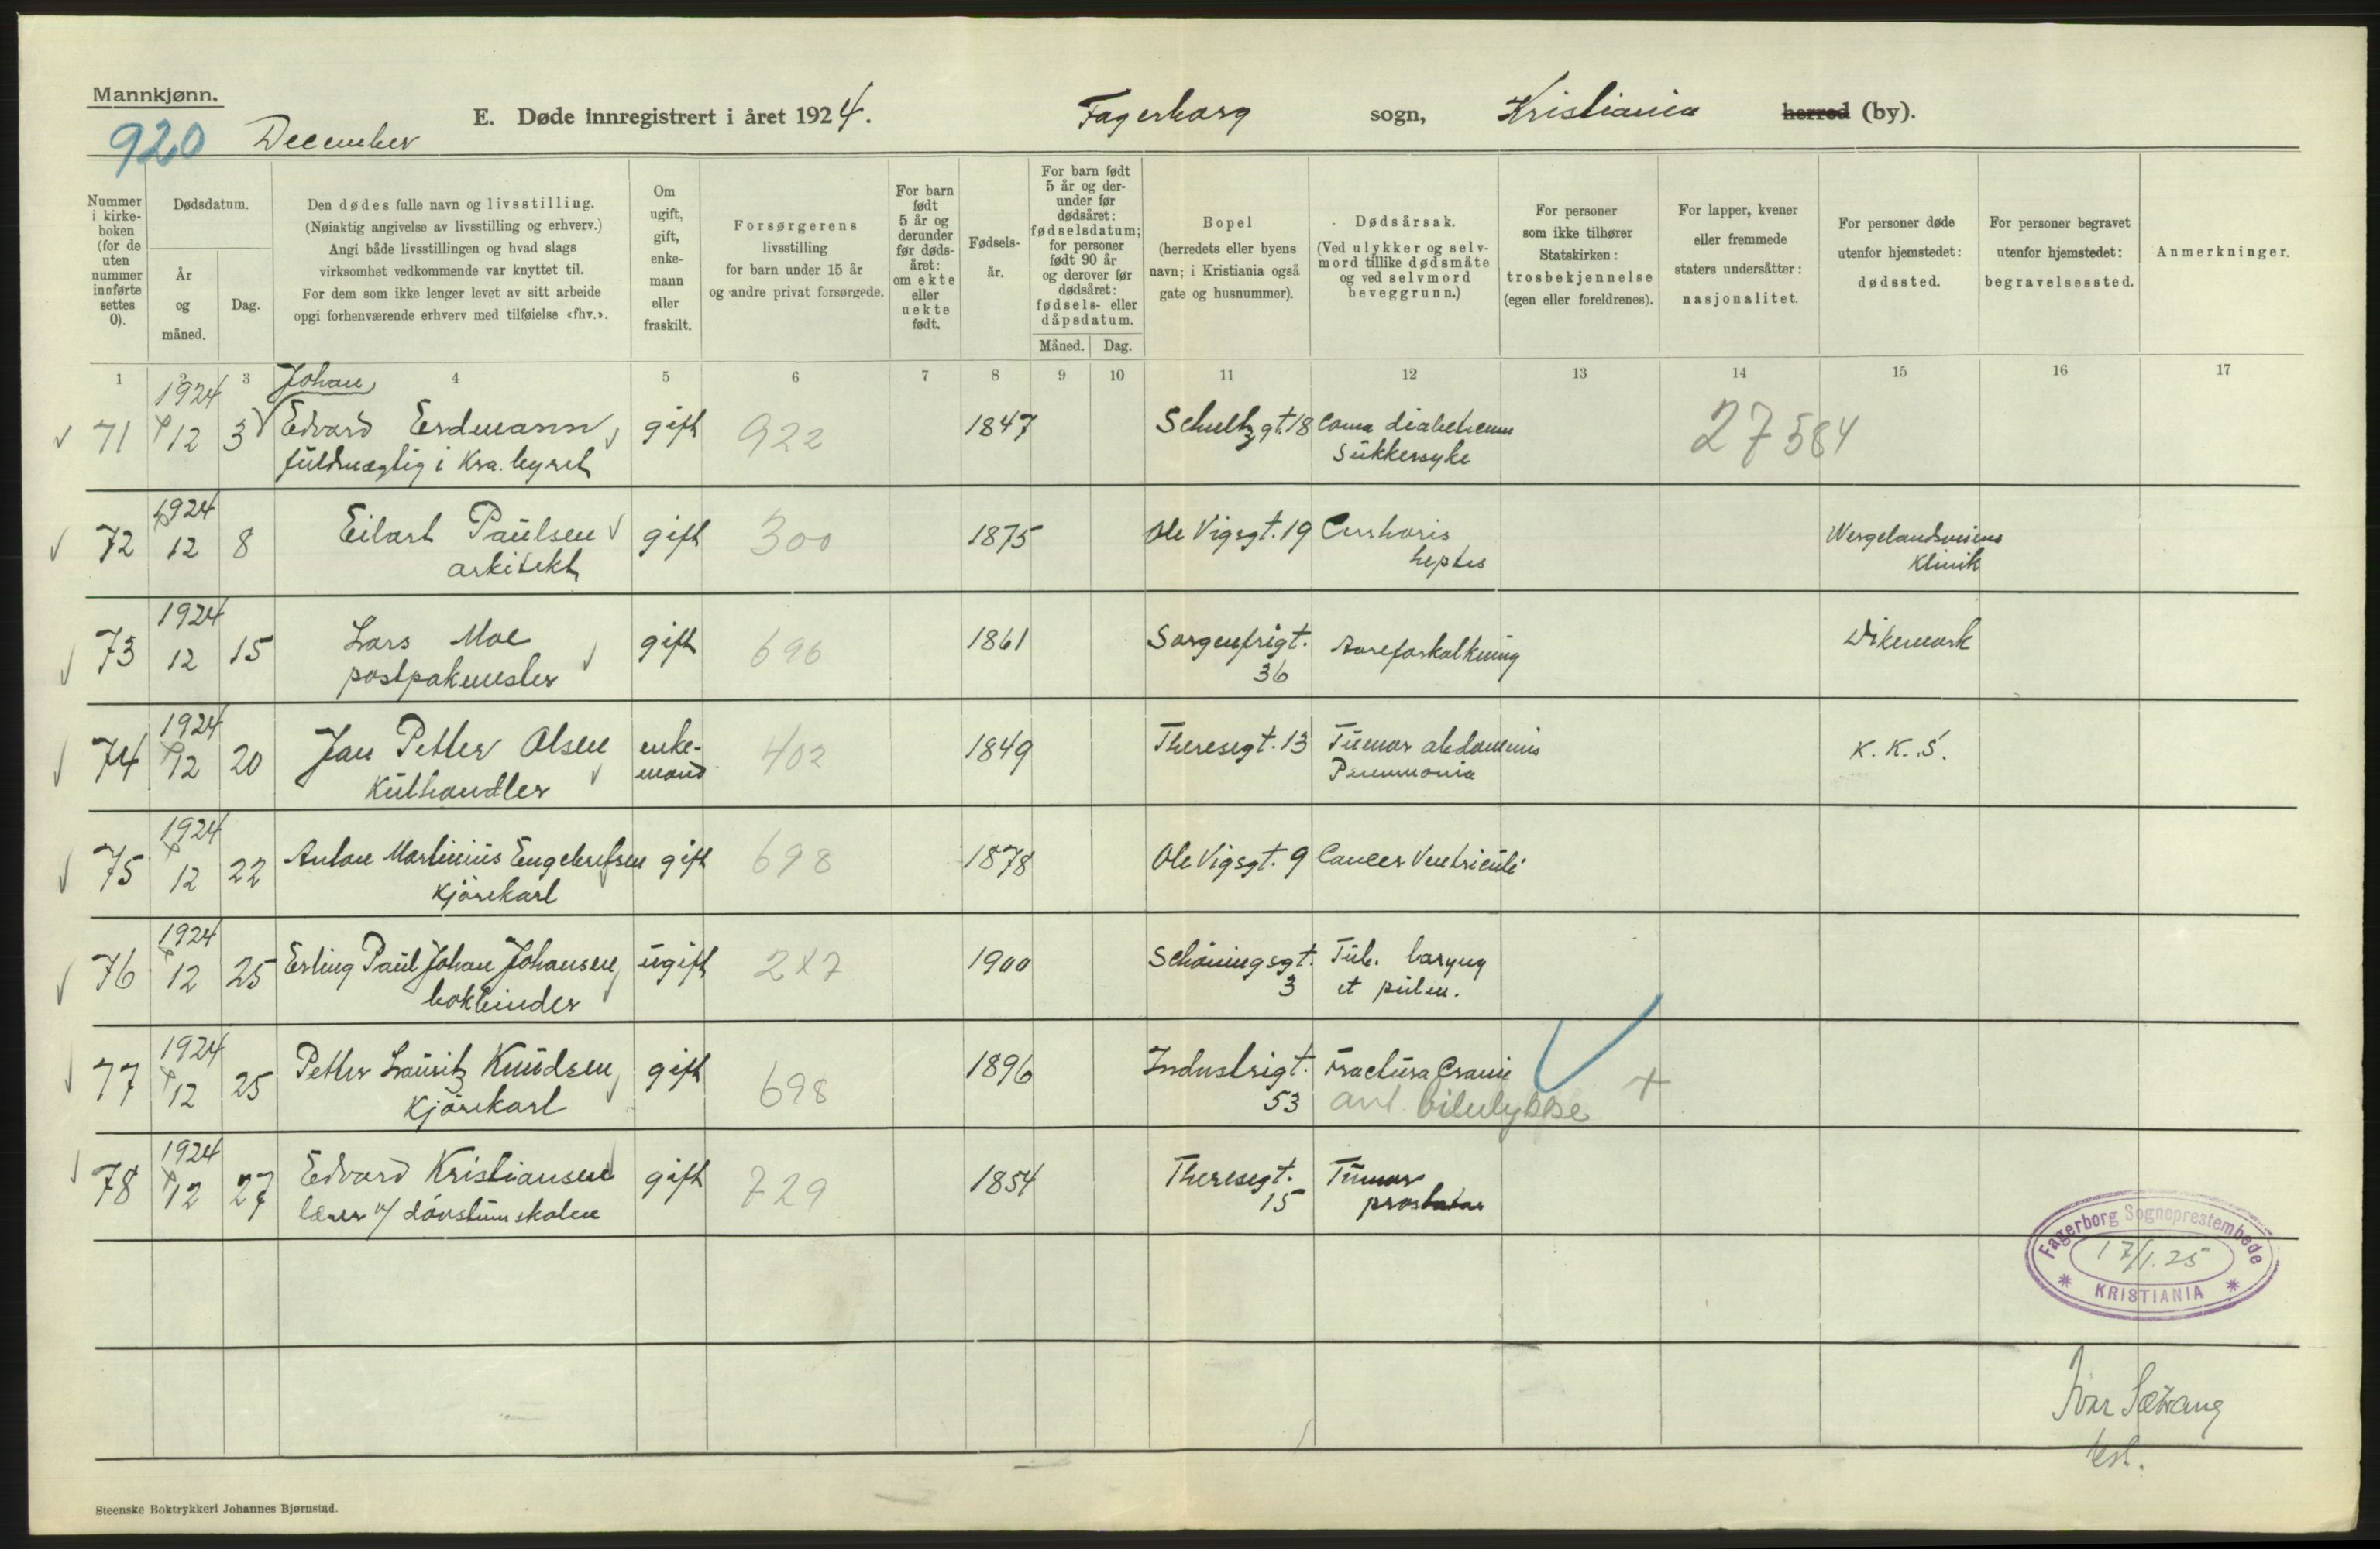 Mannkjønn.
920 December
E. Døde innregistrert i året 1924. Fagerborg sogn, Kristiania herred (by).
Nummer i kirke-boken (for de uten nummer innførte settes 0).
Dødsdatum.
År og måned.
Dag.
Den dødes fulle navn og livsstilling.
(Nøiaktig angivelse av livsstilling og erhverv.)
Angi både livsstillingen og hvad slags
virksomhet vedkommende var knyttet til.
For dem som ikke lenger levet av sitt arbeide
opgi forhenværende erhverv med tilføielse «fhv.».
Om ugift, gift, enke-mann eller fraskilt.
Forsørgerens
livsstilling
for barn under 15 år
og andre privat forsørgede.
For barn født 5 år og derunder før døds-året: om ekte eller uekte født.
Fødsels-år.
For barn født 5 år og der-under før dødsåret: fødselsdatum; for personer født 90 år og derover før dødsåret: fødsels- eller dåpsdatum.
Måned. Dag.
Bopel
(herredets eller byens
navn; i Kristiania også
gate og husnummer).
Dødsårsak.
(Ved ulykker og selv-
mord tillike dødsmåte
og ved selvmord
beveggrunn.)
For personer
som ikke tilhører
Statskirken:
trosbekjennelse
(egen eller foreldrenes).
For lapper, kvener
eller fremmede
staters undersåtter:
nasjonalitet.
For personer døde
utenfor hjemstedet:
dødssted.
For personer begravet
utenfor hjemstedet:
begravelsessted.
Anmerkninger.
1 2 3 4 5 6 7 8 9 10 11 12 13 14 15 16 17
1924 Johan
71 12 3 Edvard Erdmann gift 922 1847 Schultzgt. 18 Coma diabeticum 27584
fuldmægtig i Kra. byret Sukkersyke
1924
72 12 8 Eilart Paulsen gift 300 1875 Ole Vigsgt. 19 Cirrhosis Wergelandsveiens
arkitekt heptis Klinik
1924
73 12 15 Lars Moe gift 696 1861 Sorgenfrigt. Aareforkalkning Dikemark
postpakmester 36
1924
74 12 20 Jan Petter Olsen enke- 402 1849 Theresegt. 13 Tumor abdominis K. K. S.
Kulhandler mand Pneumonia
1924
75 12 22 Anton Martinius Engebretsen gift 698 1878 Ole Vigsgt. 9 Cancer Ventriculi
Kjørekarl
1924
76 12 25 Erling Paul Johan Johansen ugift 2X7 1900 Schøningsgt. Tub. laryng
bokbinder 3 et pulm.
1924
77 12 25 Petter Lauritz Knudsen gift 698 1896 Industrigt. Fractura Cranii +
Kjørekarl 53 ant. bilulykke
1924
78 12 27 Edvard Kristiansen gift 729 1854 Theresegt. Tumor
lærer v/ døvstumskolen 15 prostatae
Fagerborg Sogneprestembede
17/1.25
KRISTIANIA
Ivar Sævang
Steenske Boktrykkeri Johannes Bjørnstad.